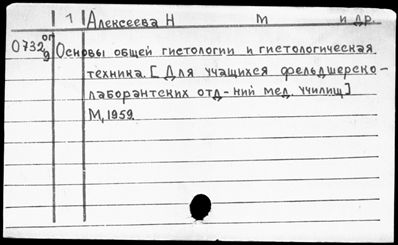 1 Алексеева Н М и др.
0732 оп
9 Основы общей гистологии и гистологическая
техника. [Для учащихся фельдшерско-
лаборантских отд-ний мед. училищ]
М, 1959.